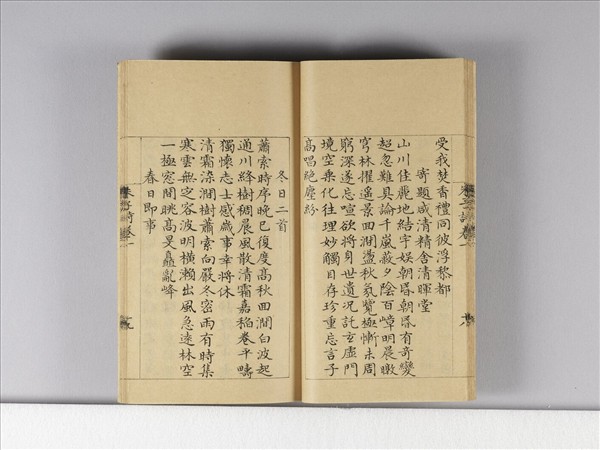 受我焚香禮同彼浮黎都
寄題咸清精舍清暉堂
山川佳麗地結宇娛朝昏朝昏有奇變
超忽難具論千嵐蔽夕陰百嶂明晨暾
穹林擢遙景回澗盪秋氛覽極慚未周
窮深遂忘喧欲將身世遺況託玄虛門
境空乗化往理妙觸目存珍重忘言子
高唱絕塵紛
冬日二首
蕭索時序晚已復度高秋回澗白波起
通川絳樹稠晨風散清霜嘉稻卷平疇
獨懷志士感歲事幸將休
清霜染澗樹蕭索向嚴冬密雨有時集
寒雲無定容波明橫瀨出風急遠林空
一極窓間眺高旻矗亂峰
春日即事